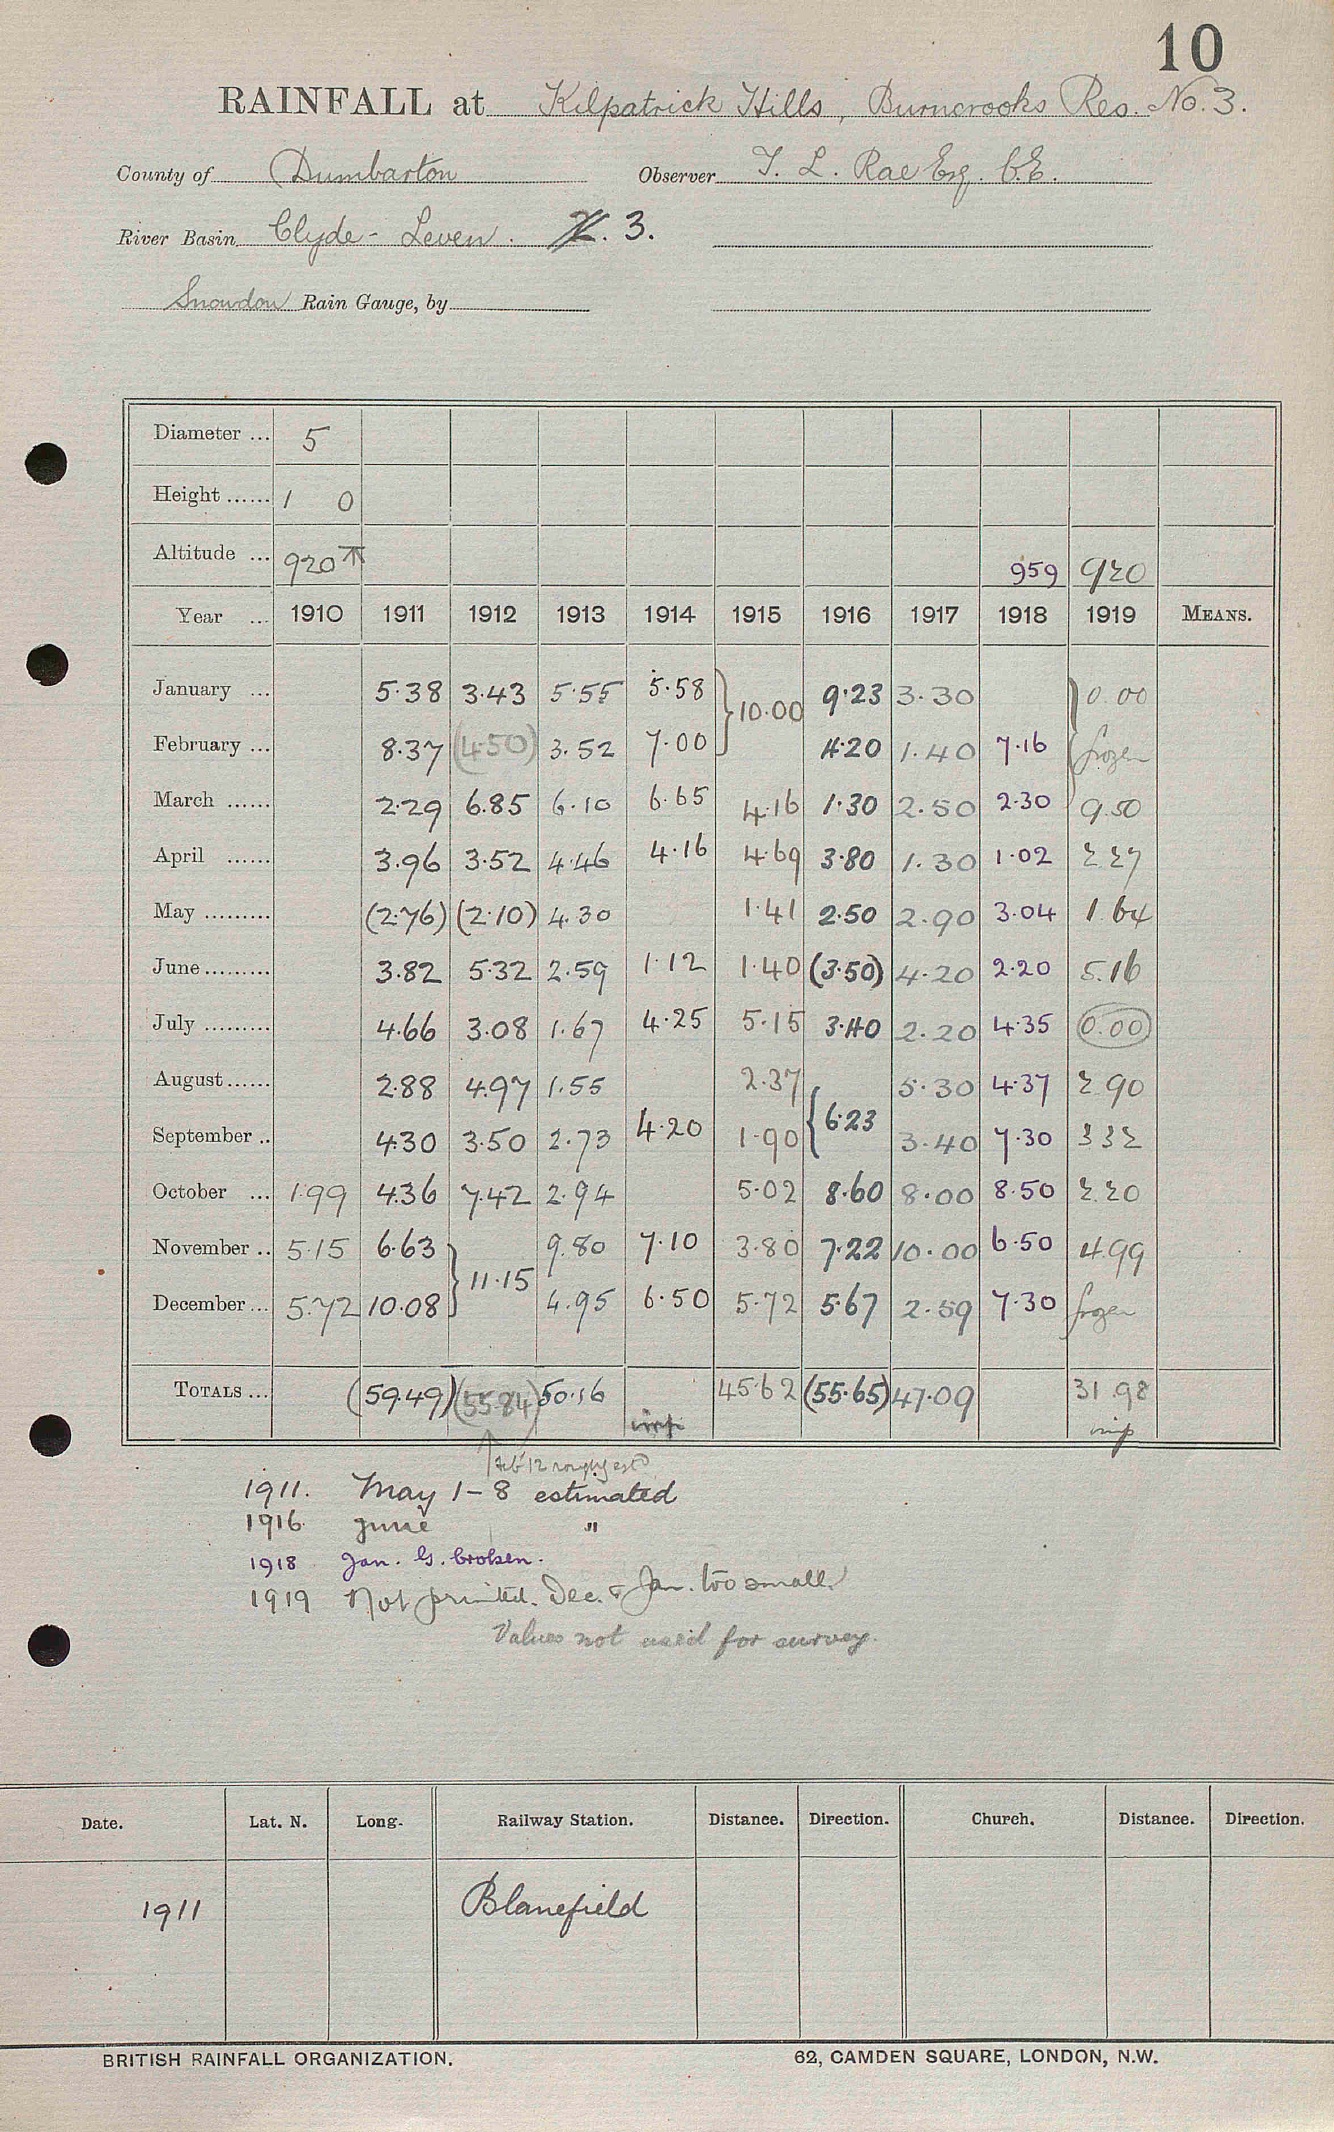 10
RAINFALL at Kilpatrick Hills, Burncrooks Res. No. 3.
County of Dumbarton Observer T. L. Rae Esq. C.E.
River Basin Clyde - Leven. 3.
Snowdon Rain Gauge, by
Diameter ... 5
Height ...... 1 0
Altitude ... 920 959 920
Year ... 1910 1911 1912 1913 1914 1915 1916 1917 1918 1919 MEANS.
January ... 5.38 3.43 5.55 5.58 } 10.00 9.23 3.30 0.00
February ... 8.37 (4.50) 3.52 7.00 4.20 1.40 7.16 frozen
March ...... 2.29 6.85 6.10 6.65 4.16 1.30 2.50 2.30 9.50
April ...... 3.96 3.52 4.46 4.16 4.69 3.80 1.30 1.02 2.27
May ......... (2.76) (2.10) 4.30 1.41 2.50 2.90 3.04 1.64
June ......... 3.82 5.32 2.59 1.12 1.40 (3.50) 4.20 2.20 5.16
July ......... 4.66 3.08 1.67 4.25 5.15 3.40 2.20 4.35 0.00
August ...... 2.88 4.97 1.55 2.37 { 6.23 5.30 4.37 2.90
September .. 4.30 3.50 2.73 4.20 1.90 3.40 7.30 3 32
October ... 1.99 4.36 7.42 2.94 5.02 8.60 8.00 8.50 2.20
November .. 5.15 6.63 } 11.15 9.80 7.10 3.80 7.22 10.00 6.50 4.99
December ... 5.72 10.08 4.95 6.50 5.72 5.67 2.59 7.30 frozen
TOTALS ... (59.49) (55.84) 50.16 45.62 (55.65) 47.09 31.98
imp imp
Feb '12 roughly estd
1911. May 1-8 estimated
1916. June "
1918 Jan. G. broken.
1919 Not printed. Dec. & Jan. too small.
Values not used for survey.
Date. Lat. N. Long. Railway Station. Distance. Direction. Church. Distance. Direction.
1911 Blanefield
BRITISH RAINFALL ORGANIZATION. 62, CAMDEN SQUARE, LONDON, N.W.